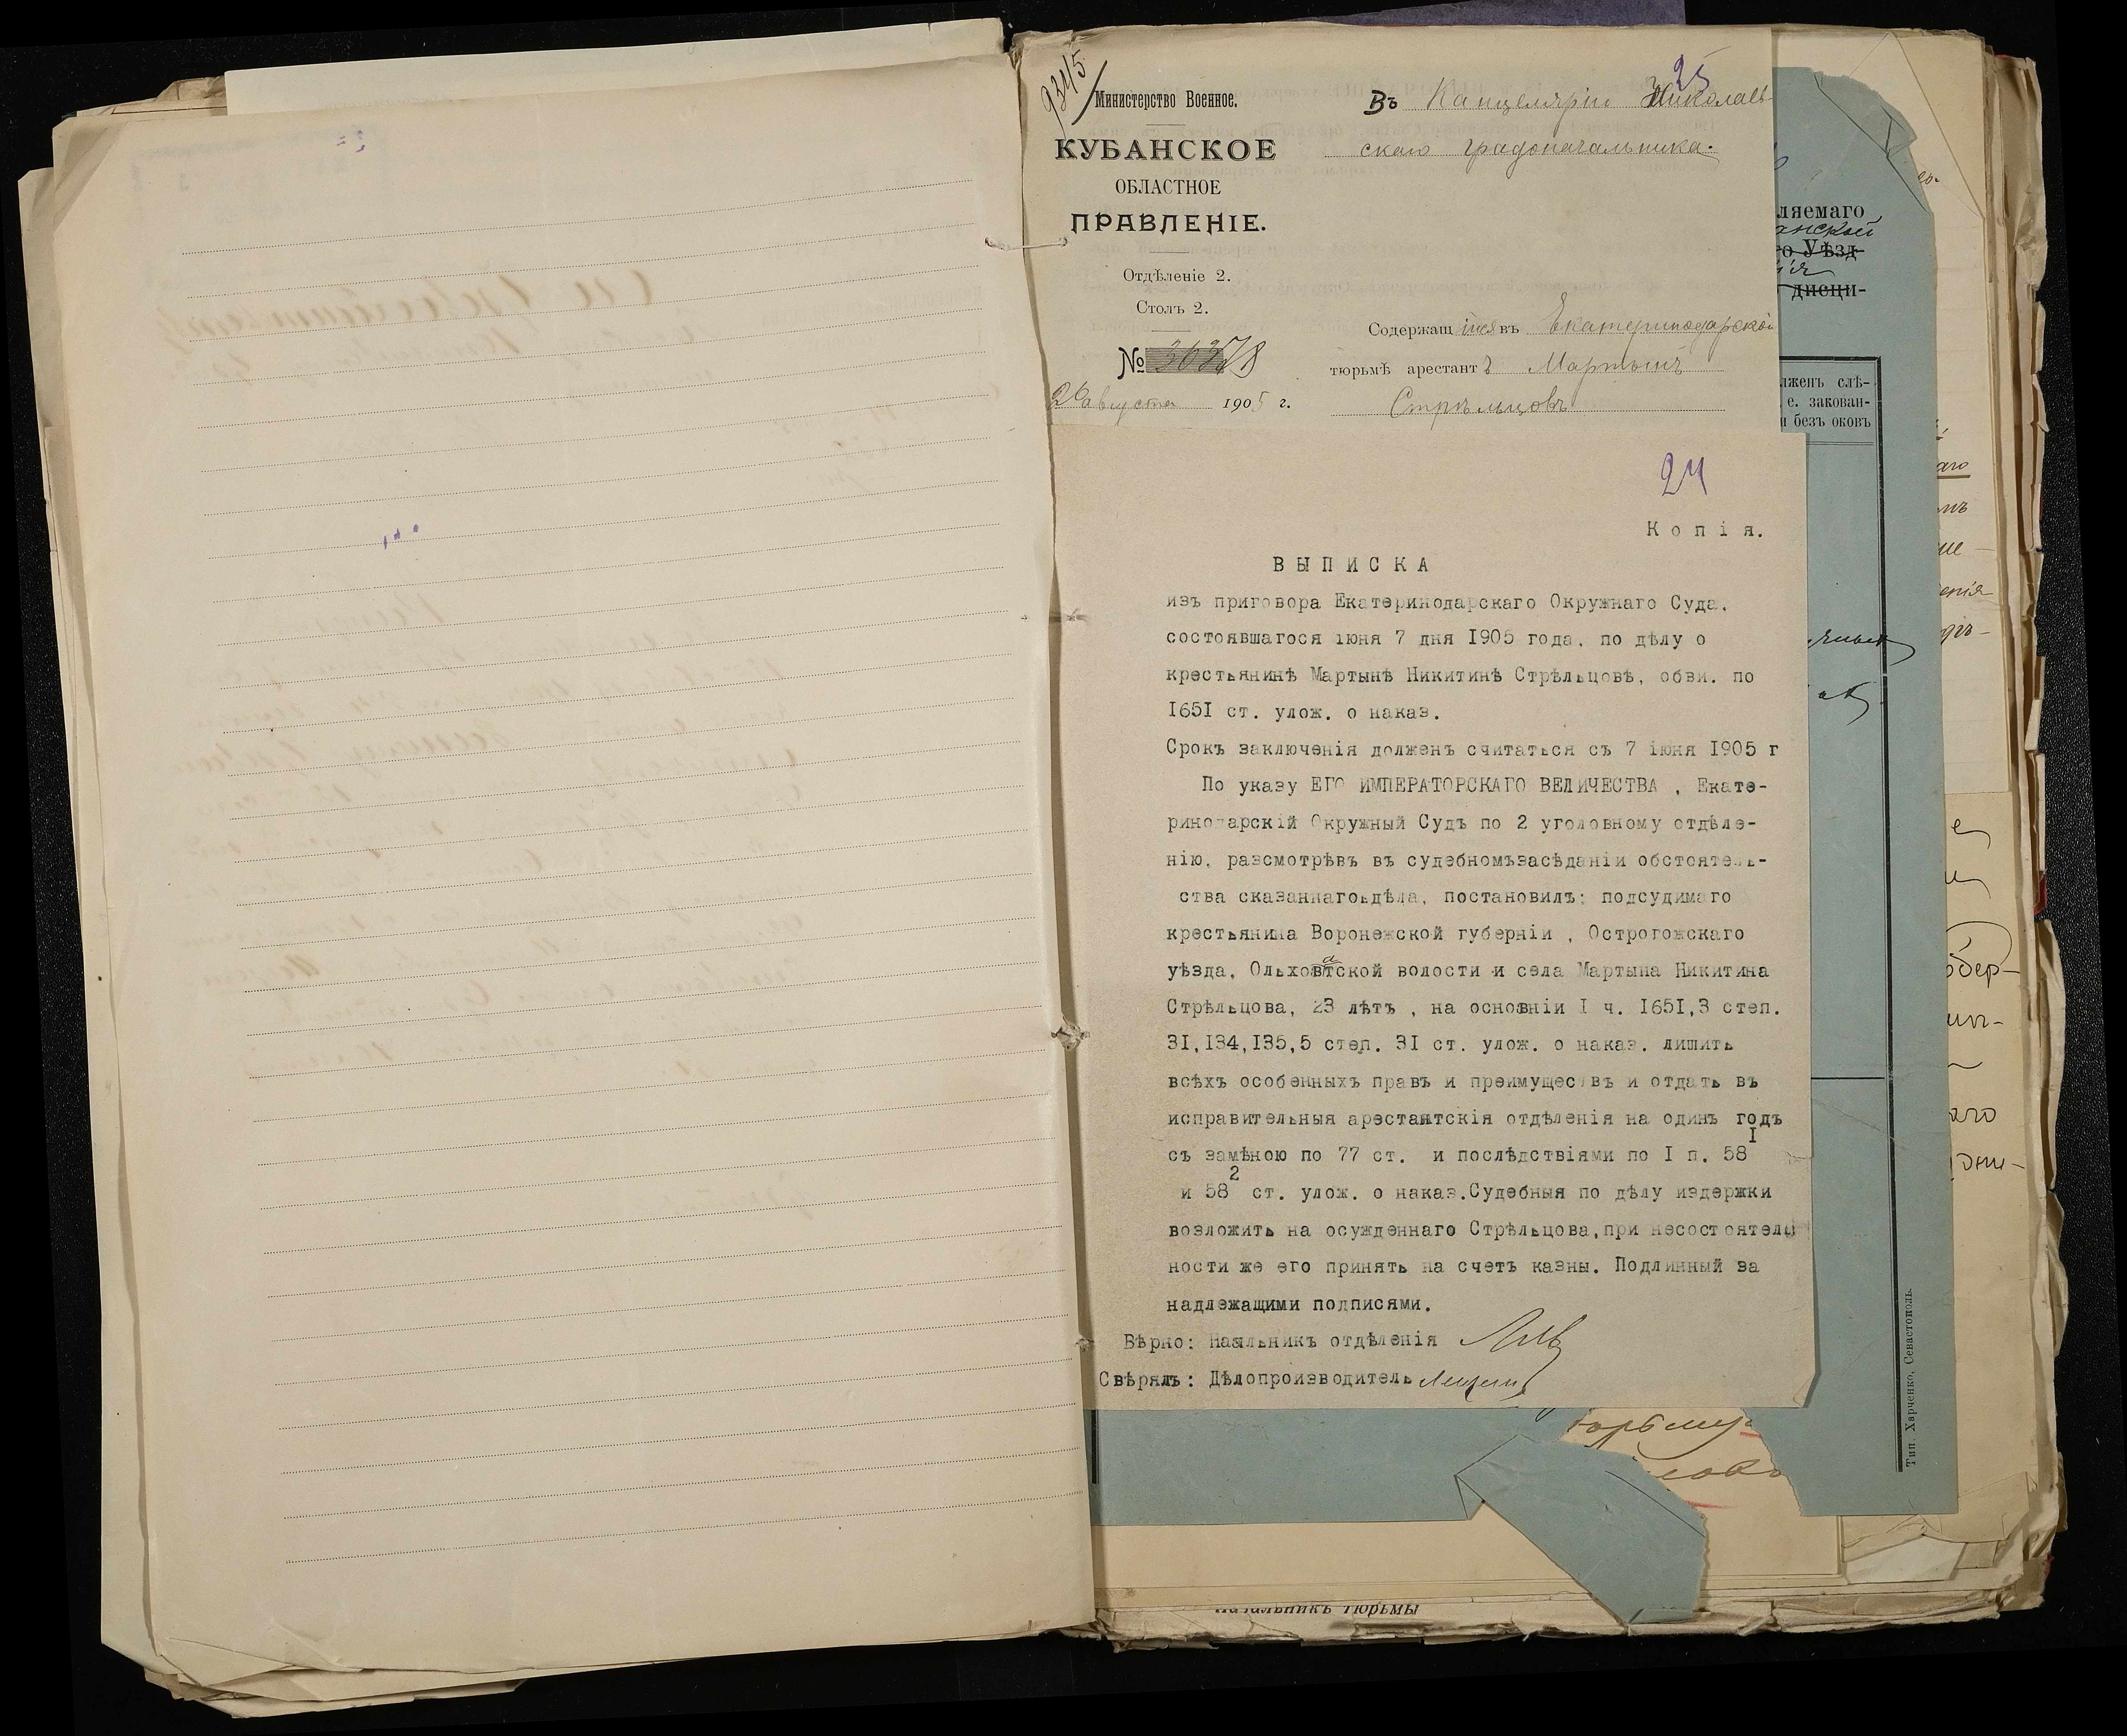 25
Министерство Военное.
КУБАНСКОЕ
ОБЛАСТНОЕ
ПРАВЛЕНІЕ.
Отдѣленіе 2.
Столъ 2.
№
августа 1905 г.
Въ Канцелярію Николаев-
скаго градоначальника.
Содержащійся въ Екатеринодарской
тюрьмѣ арестантъ Мартынъ
Стрѣльцовъ
24
Копія.
ВЫПИСКА
изъ приговора Екатеринодарскаго Окружнаго Суда,
состоявшагося іюня 7 дня 1905 года, по дѣлу о
крестьянинѣ Мартынѣ Никитинѣ Стрѣльцовѣ, обви. по
1651 ст. улож. о наказ.
Срокъ заключенія долженъ считаться съ 7 іюня 1905 г
По указу ЕГО ИМПЕРАТОРСКАГО ВЕЛИЧЕСТВА , Екате-
ринодарскій Окружный Судъ по 2 уголовному отдѣле-
нію, разсмотрѣвъ въ судебномъзасѣданіи обстоятель-
ства сказаннагоьдѣла, постановилъ: подсудимаго
крестьянина Воронежской губерніи , Острогожскаго
уѣзда, Ольховатской волости и села Мартына Никитина
Стрѣльцова, 23 лѣтъ , на основніи I ч. 1651,3 степ.
31,134,135,5 степ. 31 ст. улож. о наказ. лишить
всѣхъ особенныхъ правъ и преимуществъ и отдать въ
исправительныя арестантскія отдѣленія на одинъ годъ
съ замѣною по 77 ст. и послѣдствіями по I п. 58 I
и 58 2 ст. улож. о наказ.Судебныя по дѣлу издержки
возложить на осужденнаго Стрѣльцова,при несостоятель
ности же его принять на счетъ казны. Подлинный за
надлежащими подписями.
Вѣрно: Начальникъ отдѣленія
Свѣрялъ: Дѣлопроизводитель
ляемаго
анской
го Уѣзд-
дисци-
лженъ слѣ-
е. закован-
и безъ оковъ
Тип. Харченко, Севастополь.
Начальникъ тюрьмы